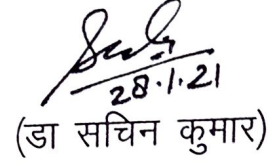 28.1.21
(डा सचिन कुमार)